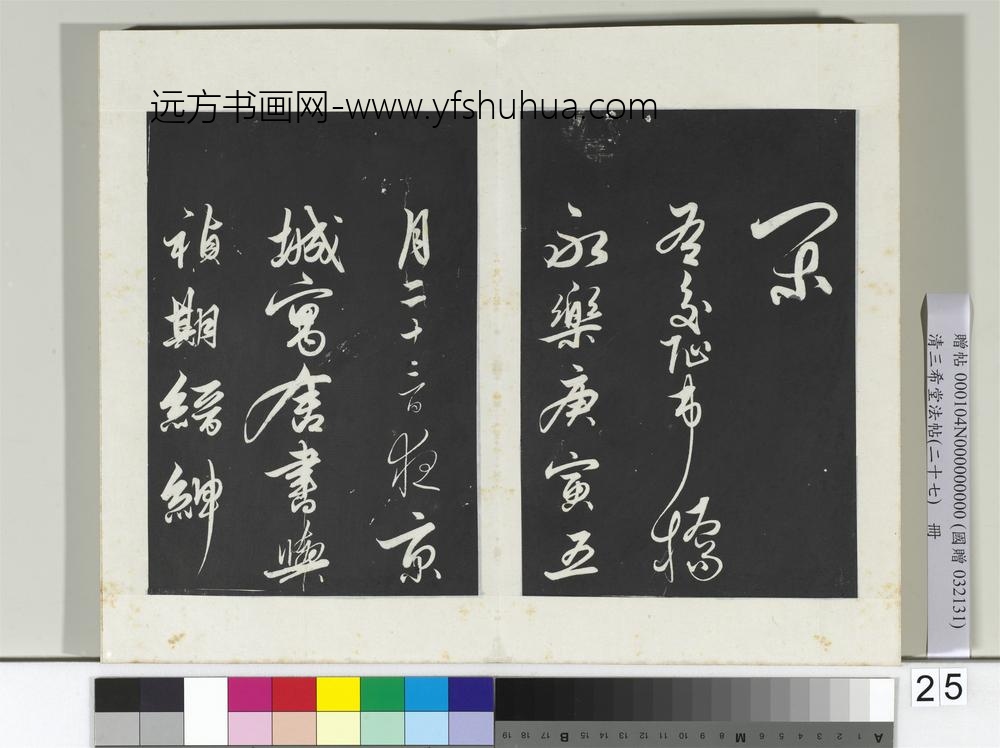 远方书画网-www.yfshuhua.com
閑
右交阯市橋
永樂庚寅五
月二十三日夜京
城寓舍書與
禎期縉紳
贈帖 000104N000000000 (國贈 032131)
清三希堂法帖(二十七) 冊
25
A 1 2 3 4 5 6 M 8 9 10 11 12 13 14 15 B 17 18 19